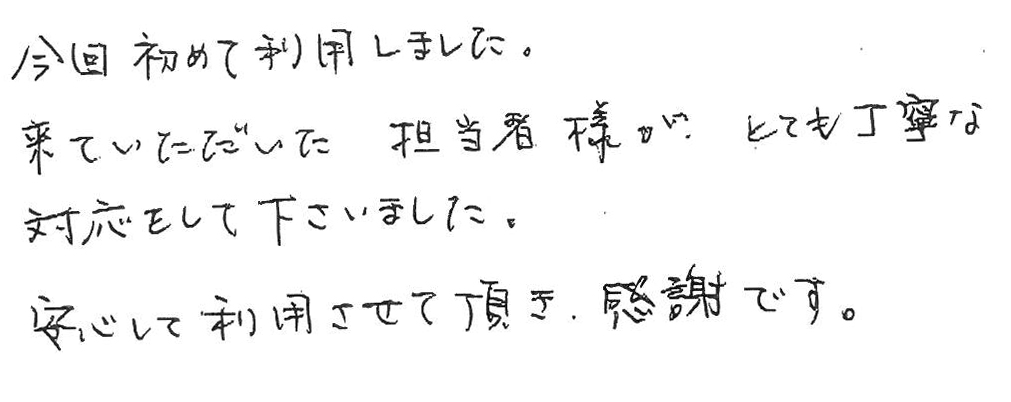 今回初めて利用しました。
来ていただいた 担当者様が、とても丁寧な
対応をして下さいました。
安心して利用させて頂き、感謝です。